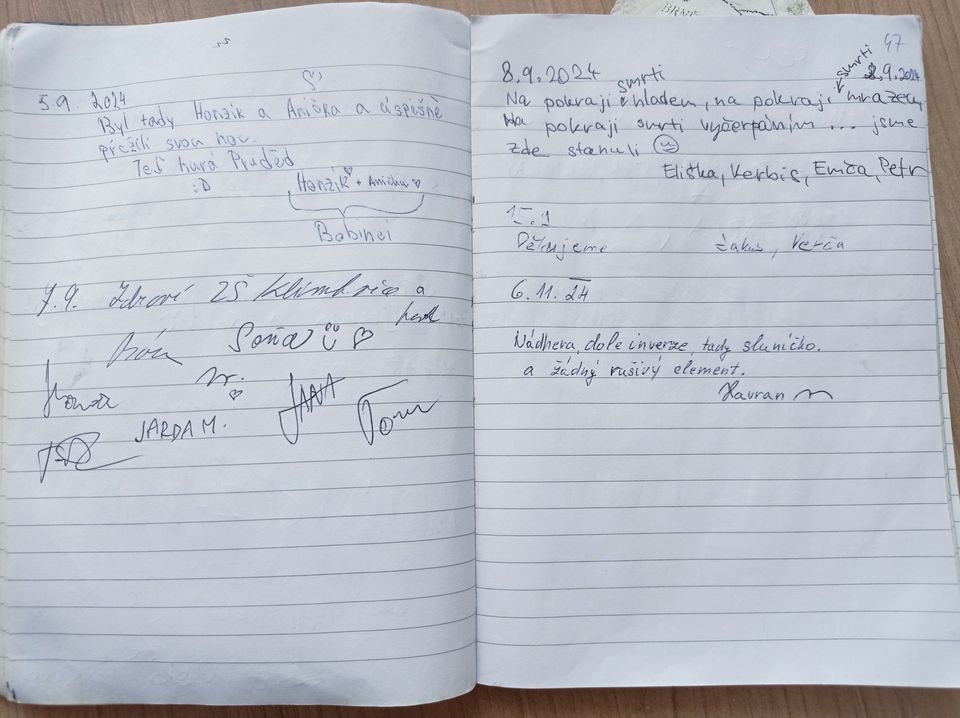 5.9. 2024
Byl tady Honzík a Anička a úspěšně
přežili svou noc.
Teď hurá Praděd
:D
Honzík + Anička
Babinei
7.9. Zdraví ZŠ a
Soňa
Honza
JARDA M.
JANA
Tom
47
8.9.2024
8.9.2024
Na pokraji smrti hladem, na pokraji smrti mrazem,
Na pokraji smrti vyčerpáním ... jsme
zde stanuli
Eliška, Verbis, Emča, Petr
Děkujeme Verča
6.11.24
Nádhera, dole inverze, tady sluníčko.
a žádný rušivý element.
Havran